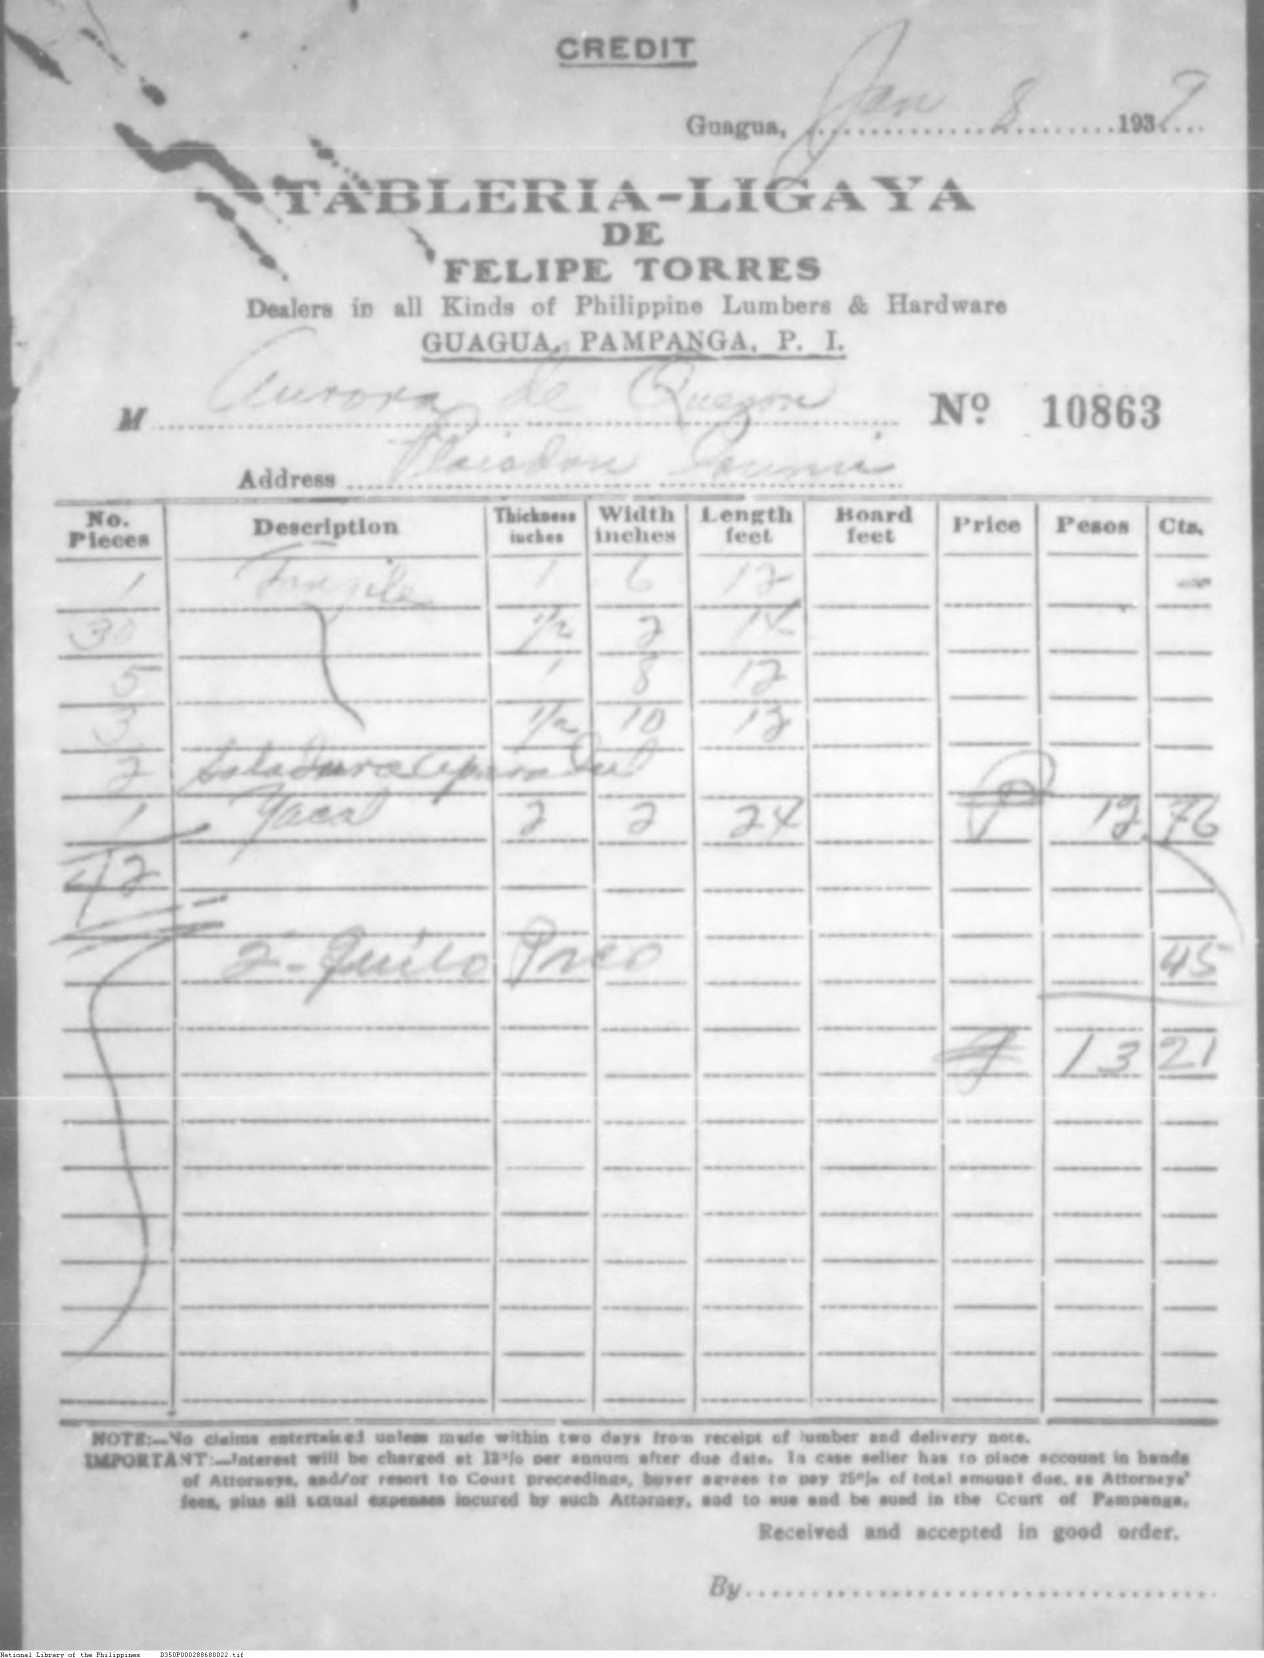 CREDIT
Guagua, Jan 8 1937
TABLERIA-LIGAYA
DE
FELIPE TORRES
Dealers in all Kinds of Philippine Lumbers & Hardware
GUAGUA, PAMPANGA, P. I.
M Aurora de Quezon Nº 10863
Address
No. Pieces Description Thickness inches Width inches Length feet Board feet Price Pesos Cts.
1 Tangile 1 6 12
30 1/2 2 14
5 1 8 12
3 1/2 10 12
2
1 Yacal 2 2 24 ₱ 12 76
42
2 - 45
₱ 13 21
NOTE:—No claims entertained unless made within two days from receipt of lumber and delivery note.
IMPORTANT:—Interest will be charged at 12% per annum after due date. In case seller has to place account in hands
of Attorneys, and/or resort to Court preceedings, buyer agrees to pay 25% of total amount due, as Attorneys'
fees, plus all actual expenses incured by such Attorney, and to sue and be sued in the Court of Pampanga.
Received and accepted in good order.
By
National Library of the Philippines D350P000288680022.tif